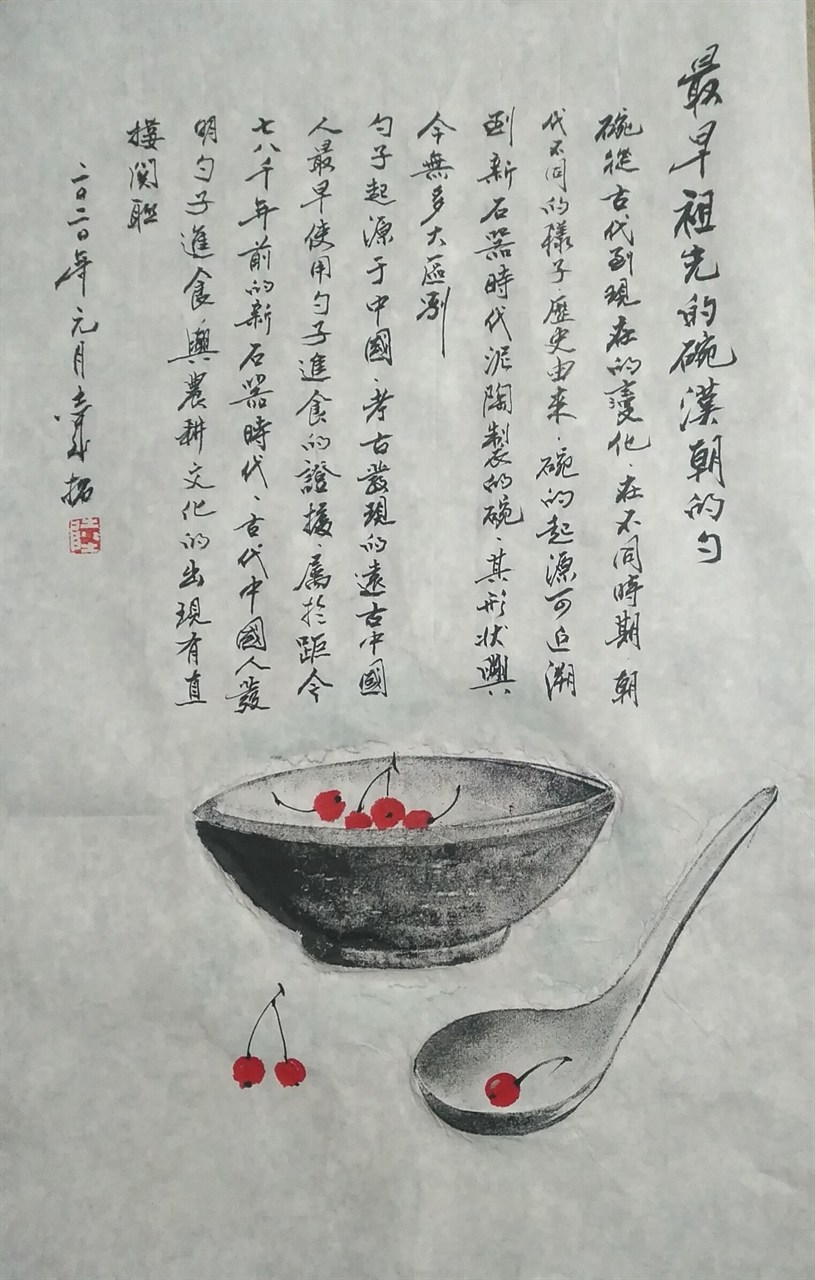 最早祖先的碗漢朝的勺
碗從古代到現在的變化.在不同時期朝
代不同的樣子.歷史由来.碗的起源可追溯
到新石器時代泥陶製的碗.其形状與
今無多大區別
勺子起源于中國.考古發現的遠古中國
人最早使用勺子進食的證據.屬於距今
七八千年前的新石器時代、古代中國人發
明勺子進食.與農耕文化的出現有直
接関聯
二〇二〇年元月 拓